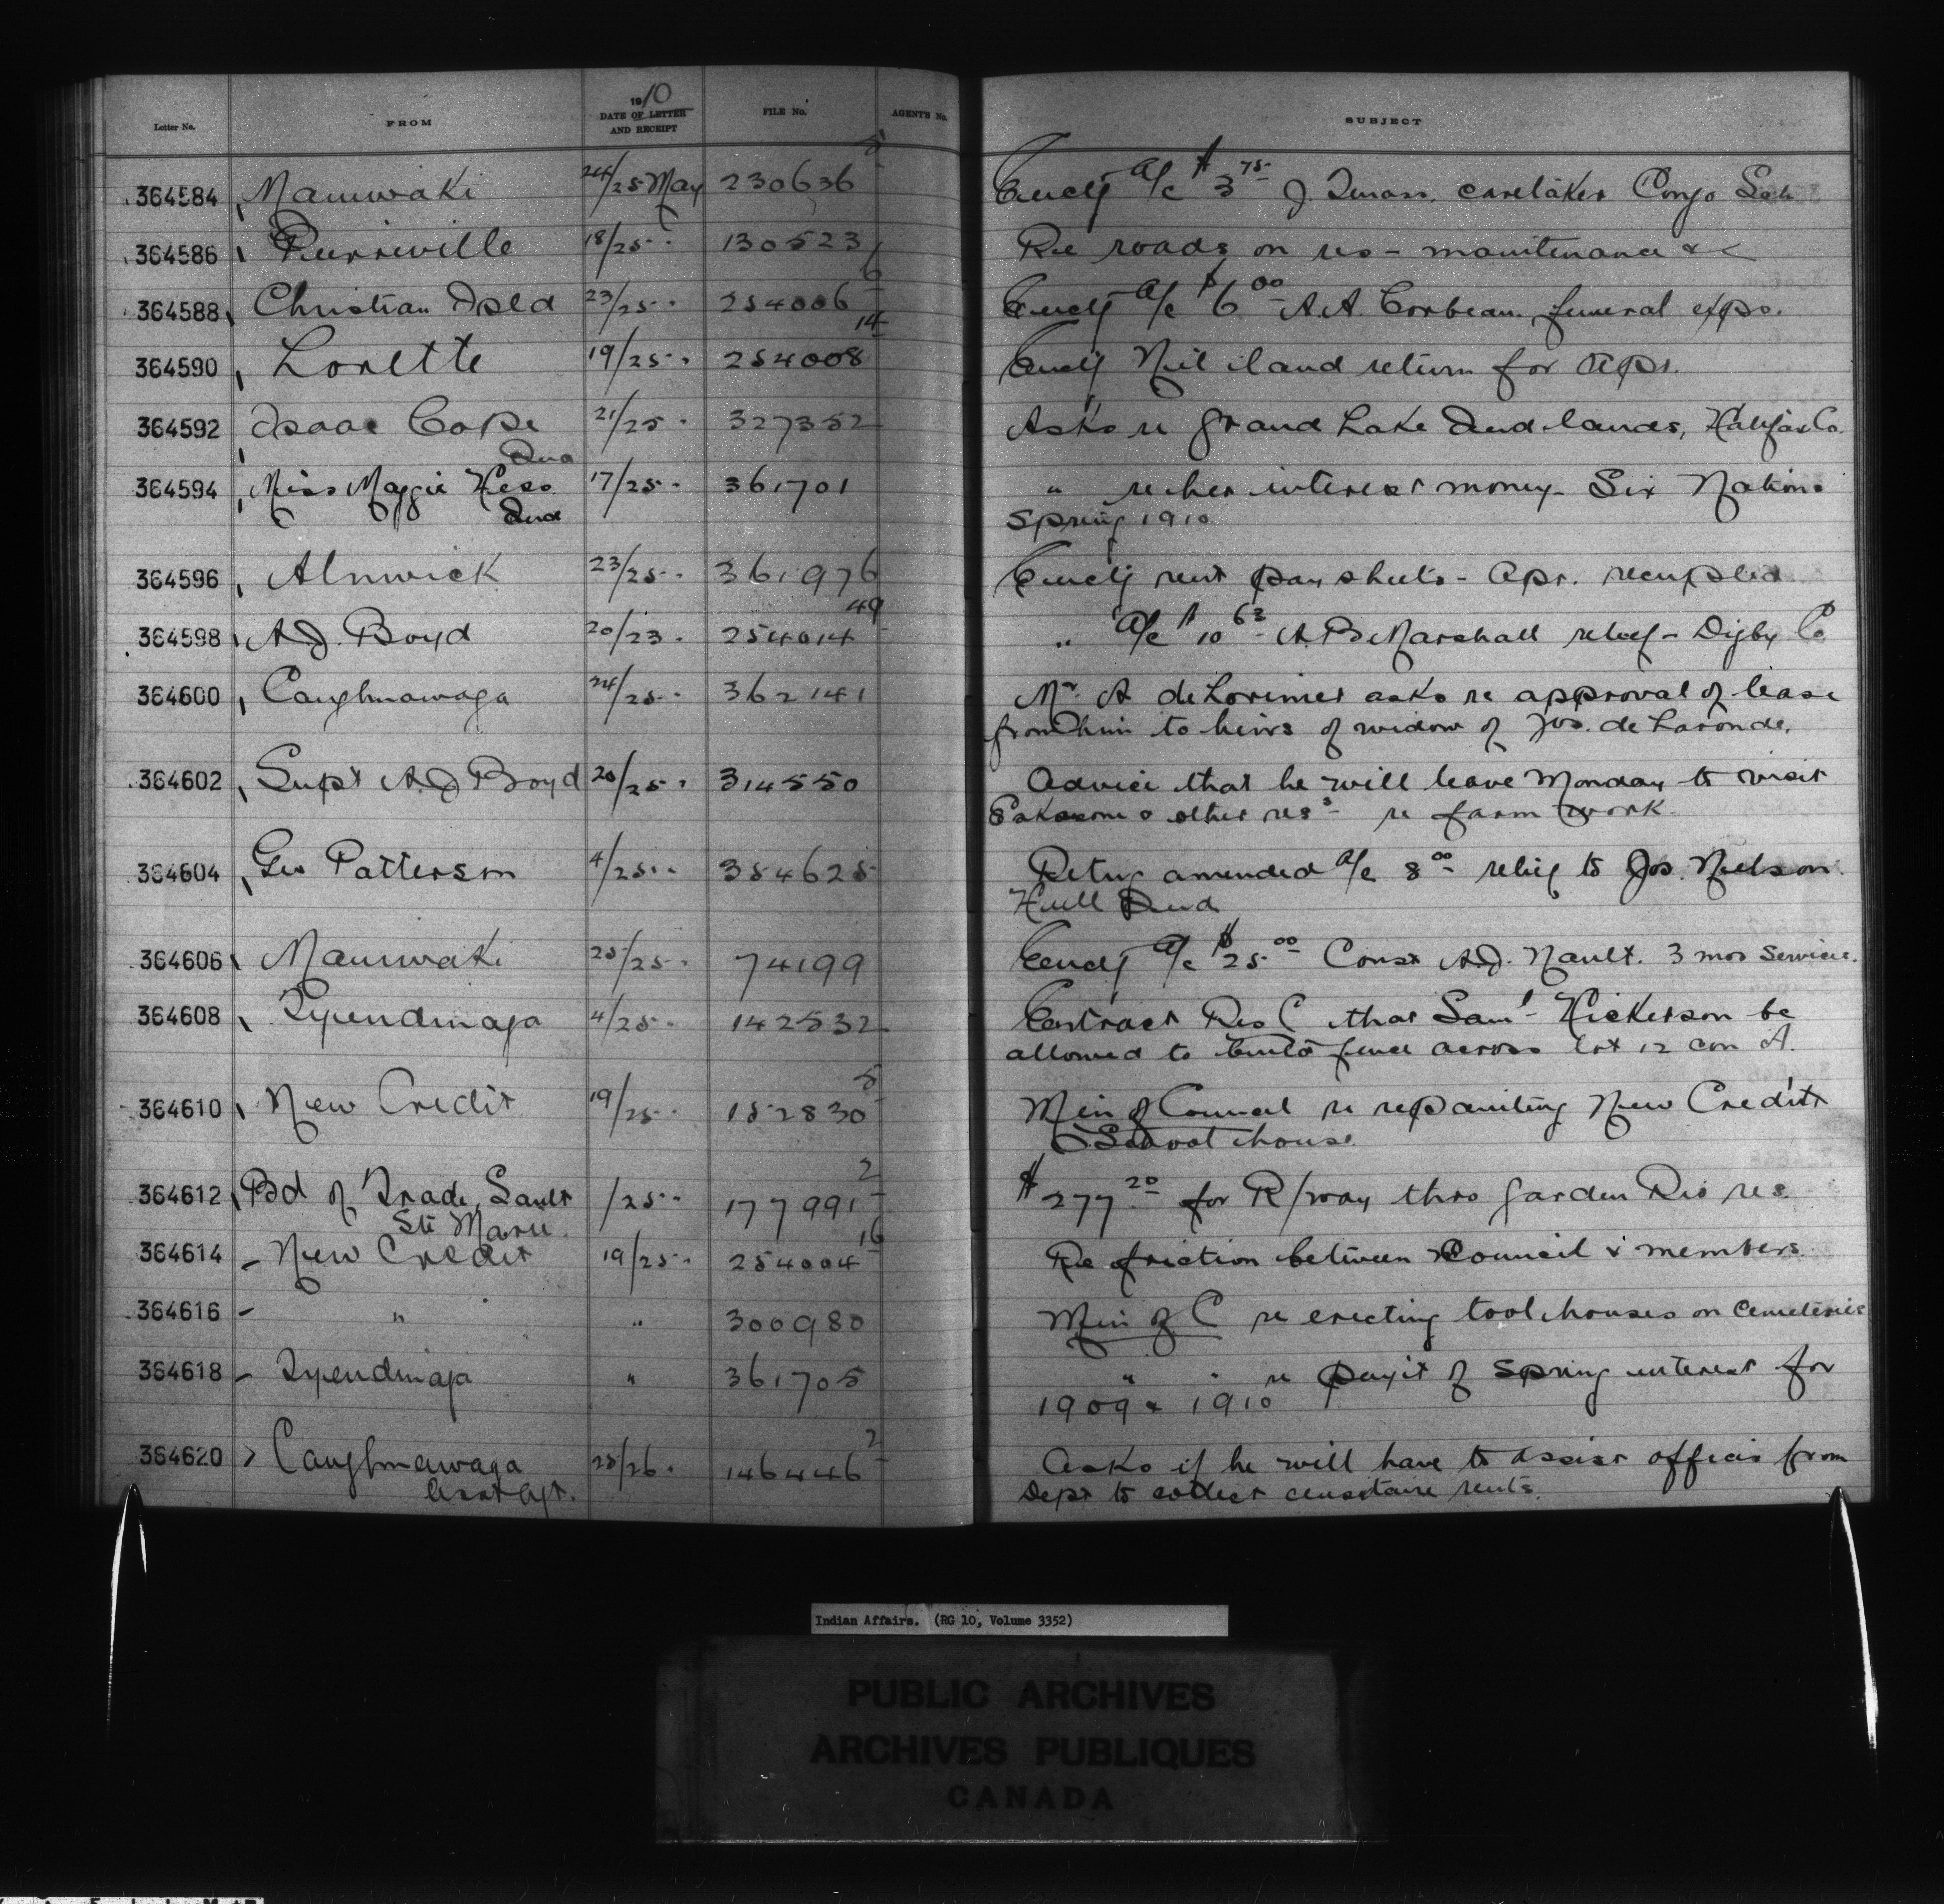 Letter No. FROM 1910 DATE OF LETTER AND RECEIPT FILE No. AGENT'S No. SUBJECT
364584 Maniwaki 24/25 May 230636 5 Encly a/c $3 75 J. caretaker Congo Sch
364586 Pierreville 18/25 " 130523 Re roads on res - maintenance &c
364588 Christian Isld 23/25 " 254006 6 Encly a/c $6 00 A.A. Corbeau funeral exps.
364590 Lorette 19/25 " 254008 14 Encly Nil land return for Apr.
364592 Isaac Cope 21/25 " 327352 Asks re Grand Lake Ind lands, Halifax Co.
Ind
364594 Miss Maggie Hess 17/25 " 361701 " re her interest money - Six Nations
Ind Spring 1910
364596 Alnwick 23/25 " 361976 Encly rent pay sheets - Apr. receipted
364598 A.J. Boyd 20/23 " 254014 49 " a/c $10 63 A.B. Marshall relief - Digby Co
364600 Caughnawaga 24/25 " 362141 Mr. A deLorimer asks re approval of lease
from him to heirs of widow of Jos. de Laronde.
364602 Supt A.J. Boyd 20/25 " 314550 Advice that he will leave Monday to visit
Eskasoni & other res's re farm work.
364604 Geo Patterson 4/25 " 354625 Retng amended a/c 8 00 relief to Jos. Nielson
Hull Ind
364606 Maniwaki 25/25 " 74199 Encly a/c $25 00 Const A.J. Nault. 3 mos service.
364608 Tyendinaga 4/25 " 142532 Extract Res C that Saml Hickerson be
allowed to build fence across lot 12 con A.
364610 New Credit 19/25 " 152830 5 Min of Council re repainting New Credit
School house.
364612 Bd of Trade, Sault /25 " 177991 2 $277 20 for R/way thro Garden Riv res.
Ste Marie.
364614 New Credit 19/25 " 254004 16 Re friction between Council & members.
364616 " " 300980 Min of C re erecting tool houses on cemeteries
364618 Tyendinaga " 361705 " " re paymt of Spring interest for
1909 & 1910
364620 Caughnawaga 25/26 " 146446 2 Asks if he will have to assist officer from
Asst Agt. Dept to collect censitaire rents.
Indian Affairs. (RG 10, Volume 3352)
PUBLIC ARCHIVES
ARCHIVES PUBLIQUES
CANADA